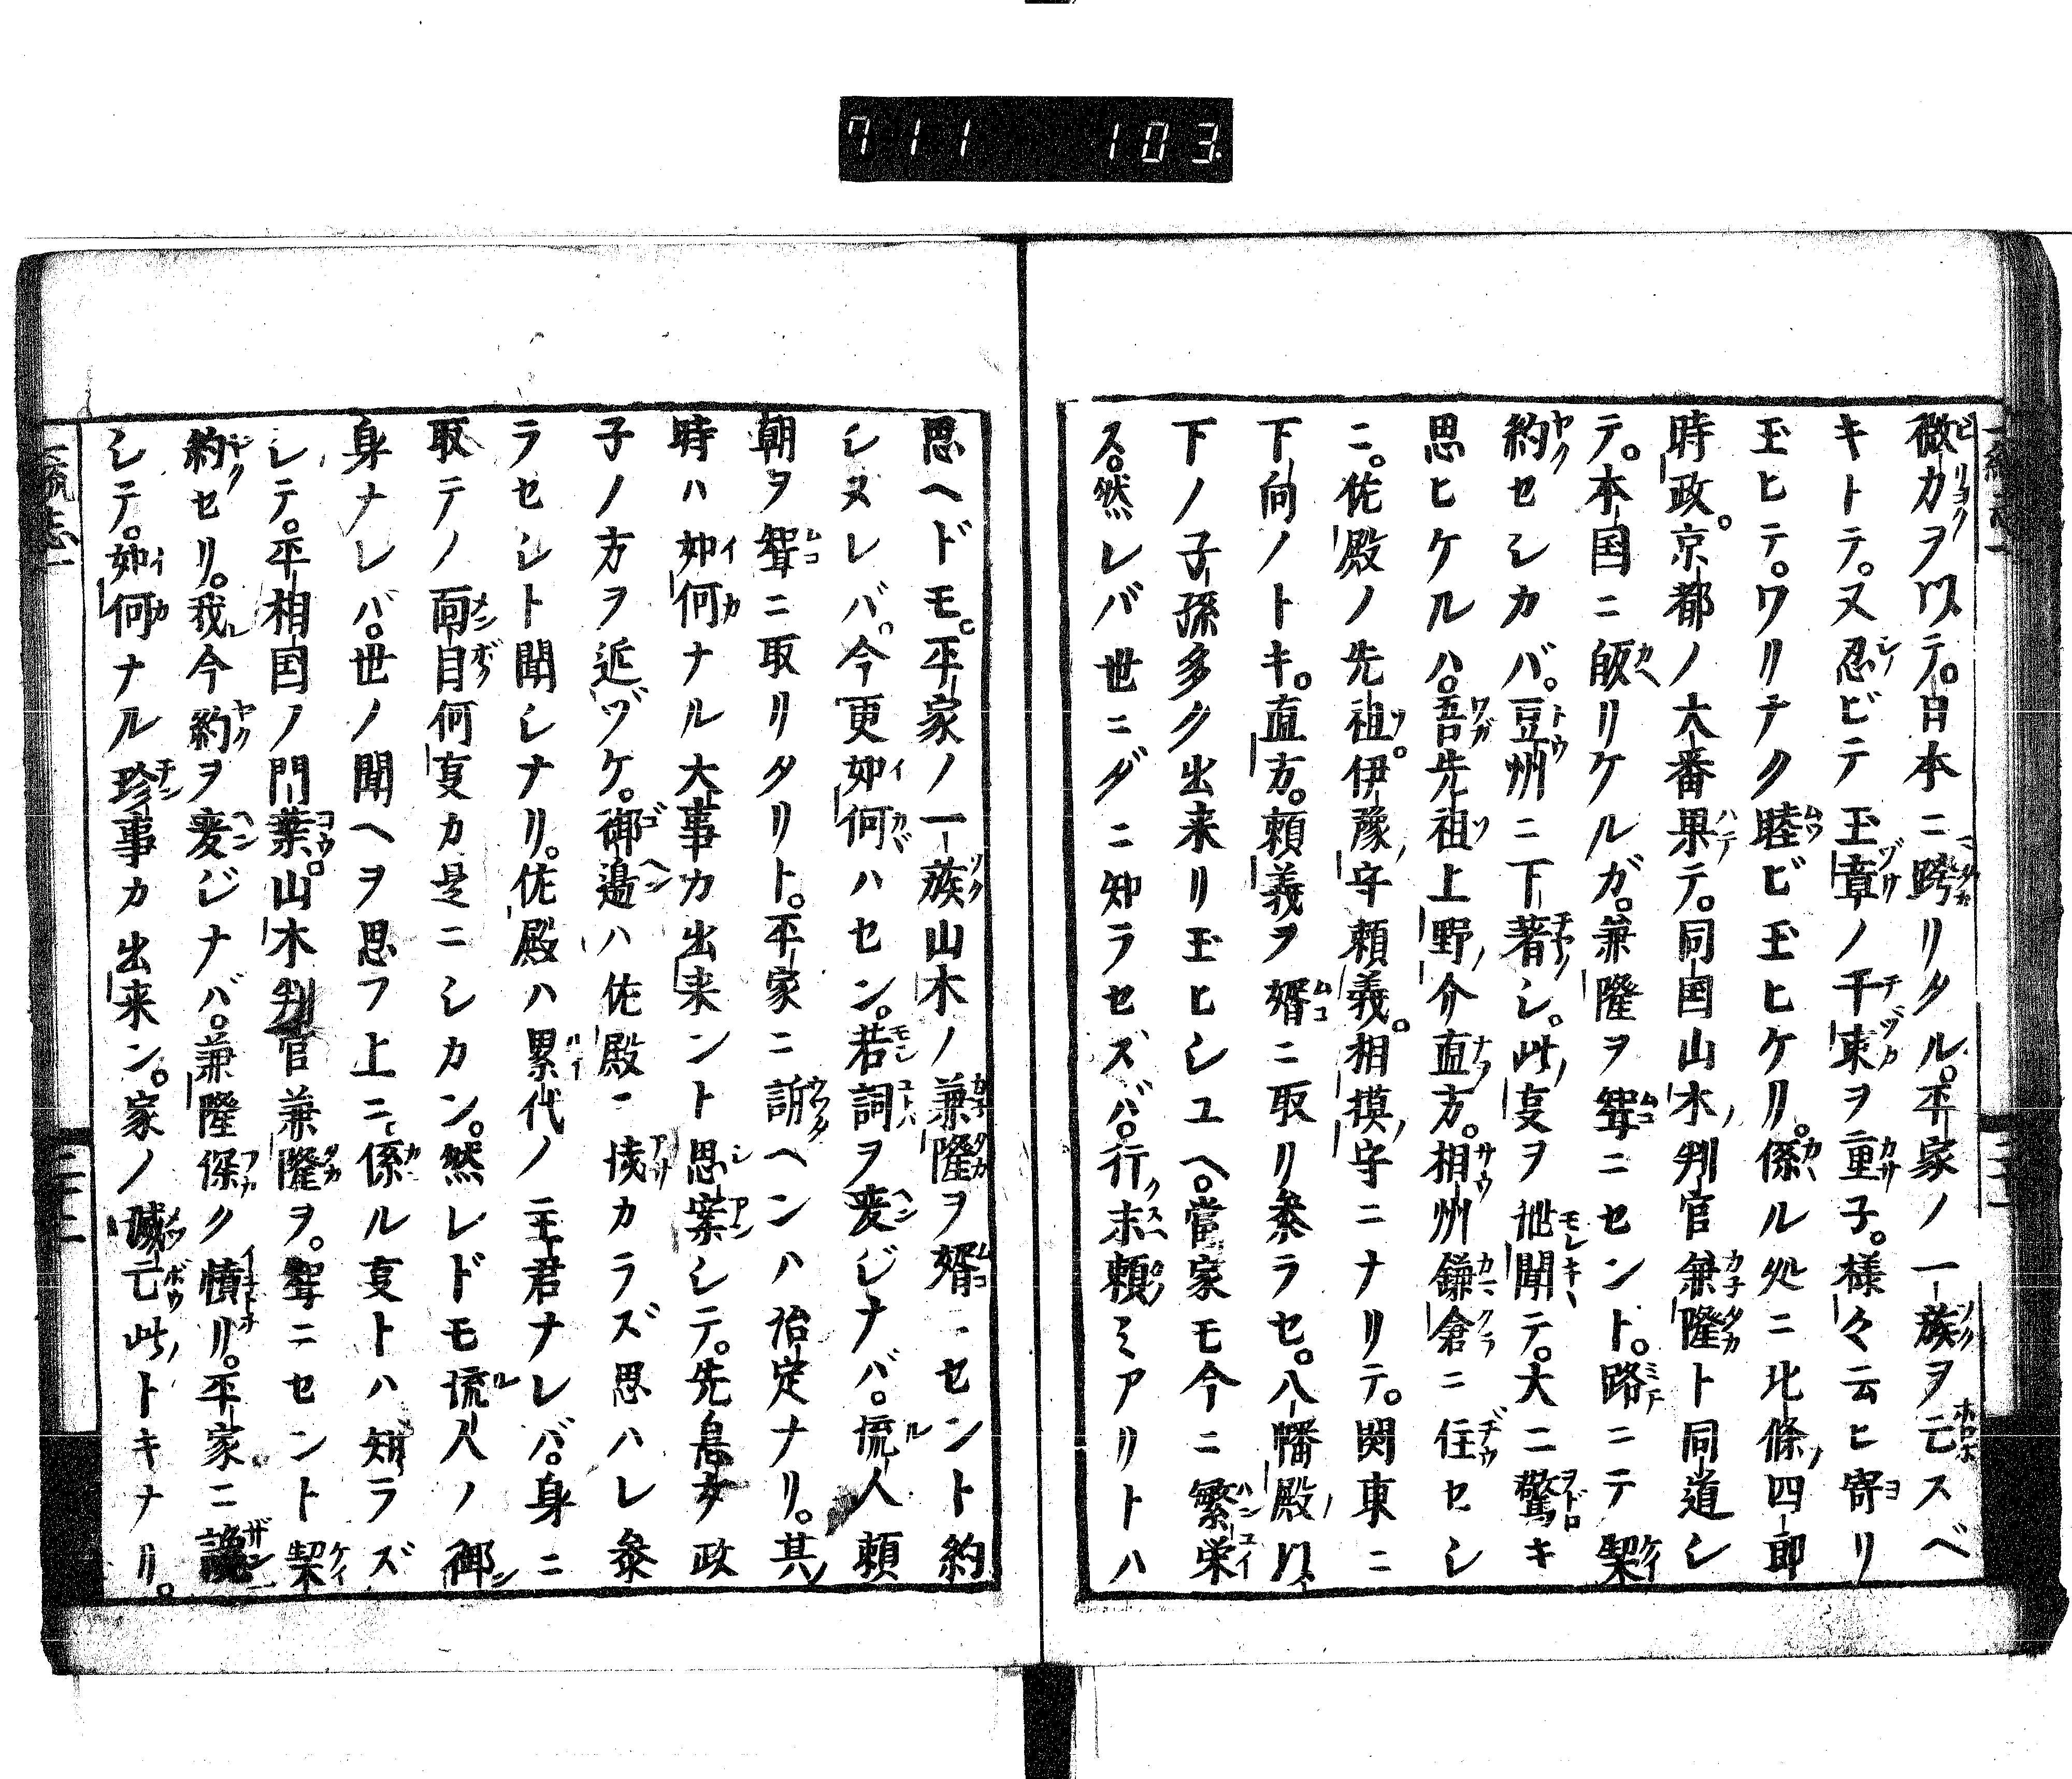 711 103
微力ヲ以テ。日本ニ跨リタル。平家ノ一族ヲ亡スベ
キトテ。又忍ビテ玉章ノ千束ヲ重子。様々云ヒ寄リ
玉ヒテ。ワリナク睦ビ玉ヒケリ。係ル処ニ北條四郎
時政。京都ノ大番果テ。同国山木判官兼隆ト同道シ
テ。本国ニ皈リケルガ。兼隆ヲ聟ニセント。路ニテ契
約セシカバ。豆州ニ下著シ。此㕝ヲ泄聞テ。大ニ驚キ
思ヒケルハ。吾先祖上野介直方。相州鎌倉ニ住セシ
ニ。佐殿ノ先祖。伊豫守頼義。相摸守ニナリテ。関東ニ
下向ノトキ。直方。頼義ヲ婿ニ取リ参ラセ。八幡殿以
下ノ子孫多ク出来リ玉ヒシユヘ。當家モ今ニ繁栄
ス。然レバ世ニダニ知ラセズバ。行末頼ミアリトハ
思ヘドモ。平家ノ一族山木ノ兼隆ヲ婿ニセント約
シヌレバ。今更如何ハセン。若詞ヲ変ジナバ。流人頼
朝ヲ聟ニ取リタリト。平家ニ訴ヘンハ治定ナリ。其
時ハ如何ナル大事カ出来ント思案シテ。先息女政
子ノ方ヲ近ヅケ。御邉ハ佐殿ニ浅カラズ思ハレ参
ラセシト聞シナリ。佐殿ハ累代ノ主君ナレバ。身ニ
取テノ面目何㕝カ是ニシカン。然レドモ流人ノ御
身ナレバ。世ノ聞ヘヲ思フ上ニ。係ル㕝トハ知ラズ
シテ。平相国ノ門葉。山木判官兼隆ヲ。聟ニセント契
約セリ。我今約ヲ変ジナバ。兼隆深ク憤リ。平家ニ讒
シテ。如何ナル珍事カ出来ン。家ノ滅亡此トキナリ。